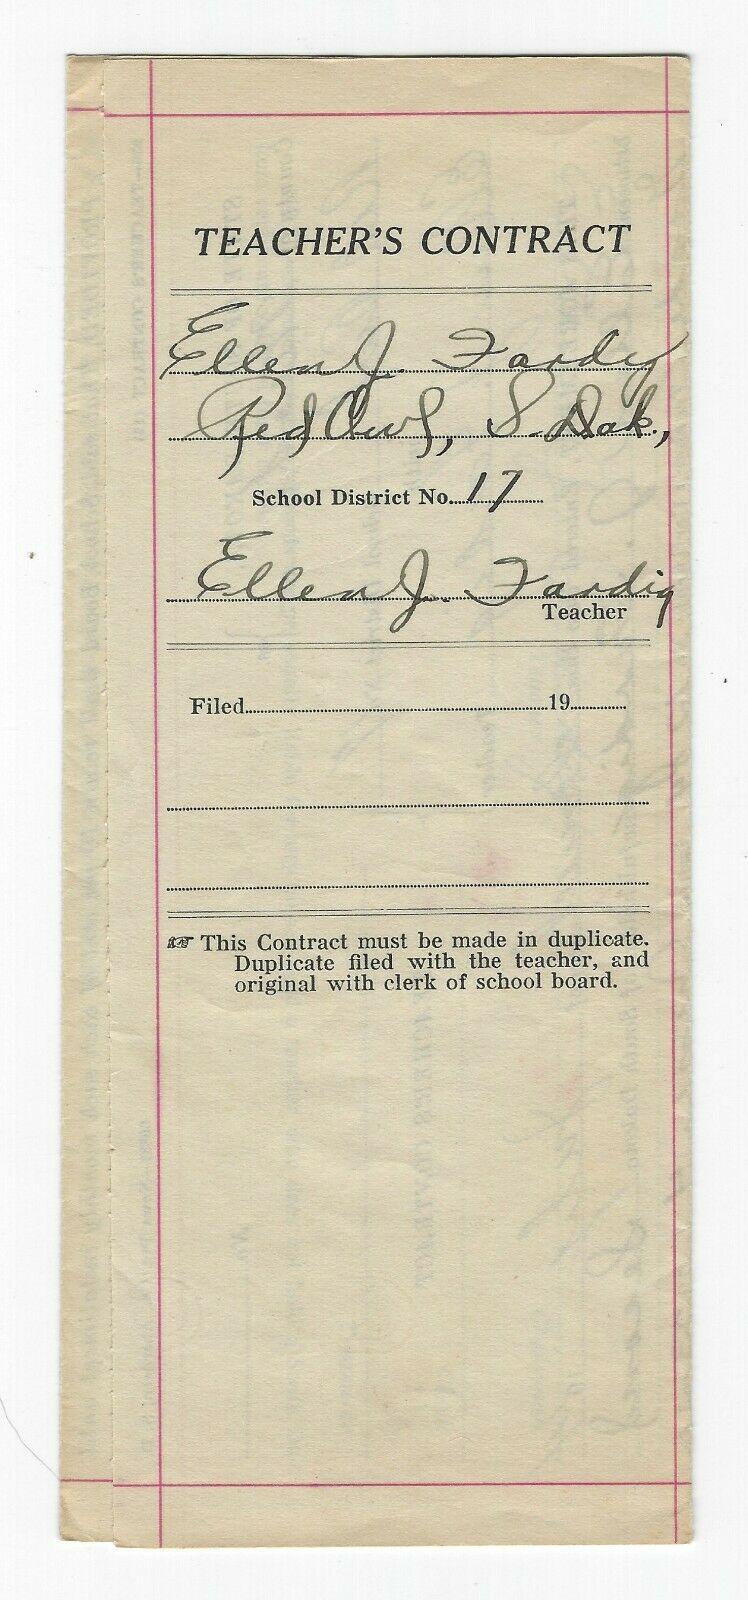 TEACHER'S CONTRACT
Ellen J. Fardig
Red Owl, S. Dak.,
School District No. 17
Ellen J. Fardig
Teacher
Filed 19
☞ This Contract must be made in duplicate.
Duplicate filed with the teacher, and
original with clerk of school board.